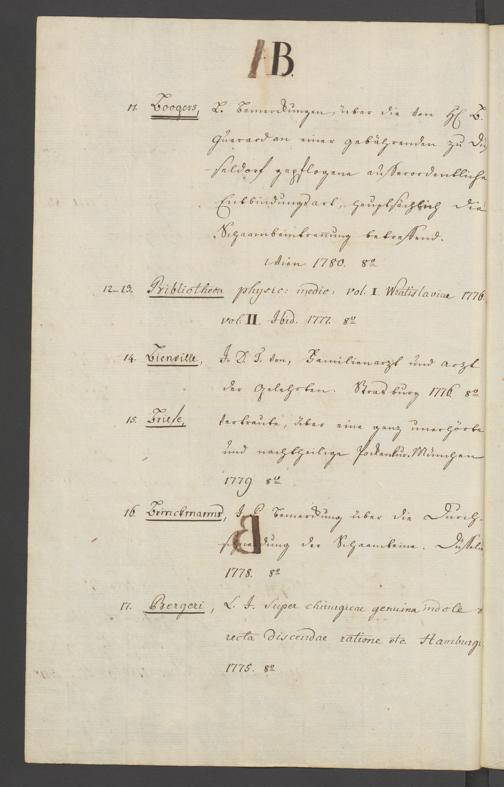 B.
11. Boogers, L. Bemerkungen, über die von H. B.
Guerard an einer gebährenden zu Düs
seldorf gepflogene ausserordentliche
Entbindungsart, hauptsächlich die
Schaambeintrennung betreffend.
Wien 1780. 8º
12_13. Bibliotheca physic: medic: vol. I. Wratislaviae 1776.
vol. II. Ibid. 1777. 8º
14. Bienville, J. D. T. von, Familienarzt und arzt
der Gelehrten. Strasburg 1776. 8º
15. Briefe, vertraute, über eine ganz unerhörte
und nachtheilige Pockenkur. München
1779 8º
16. Brinckmanns, J. P. Bemerkung über die Durch-
schneidung der Schaambeine. Düsseld
1778. 8º
17. Bergeri, C. J. Super chirurgicae genuina indole
recta discendae ratione etc. Hamburgi
1775. 8º